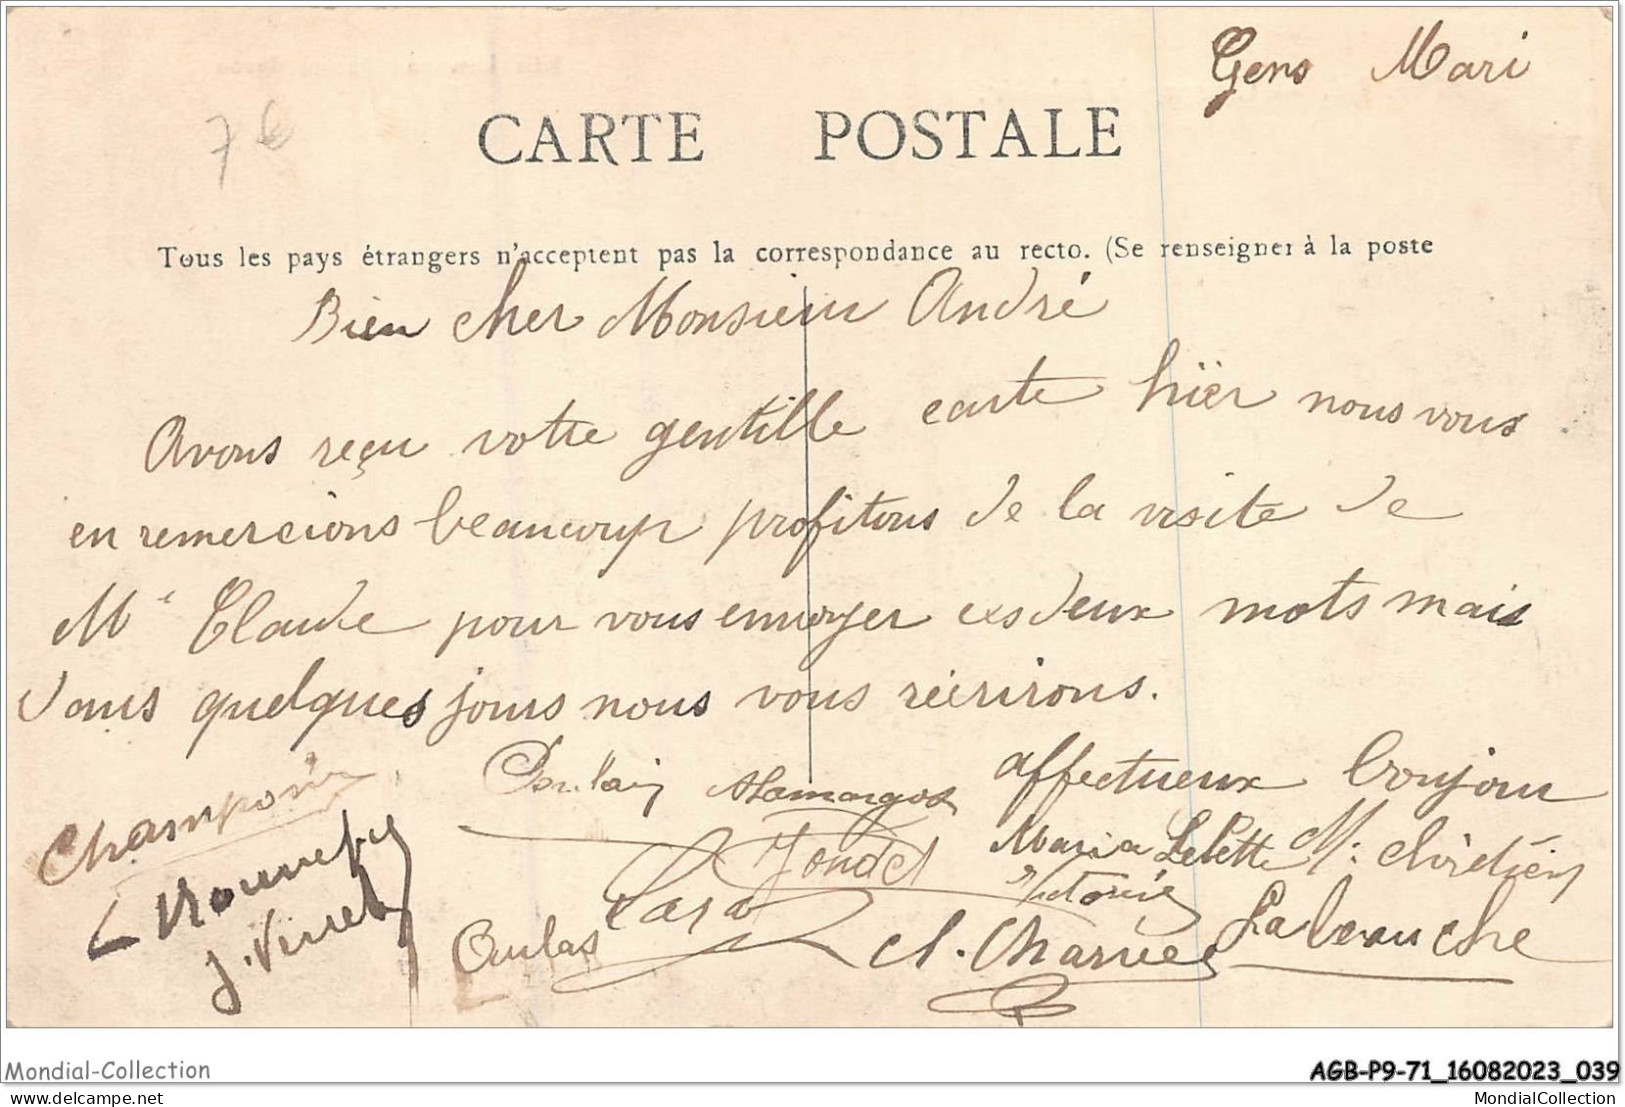 Gens Mari
7 €
CARTE POSTALE
Tous les pays étrangers n'acceptent pas la correspondance au recto. (Se renseigner à la poste
Bien cher Monsieur André
Avons reçu votre gentille carte hïer nous vous
en remercions beaucoup profitons de la visite de
Mr Claude pour vous envoyer ces deux mots mais
dans quelques jours nous vous réérirons.
affectueux bonjour
Champoni
Poulain
Jondet
Maria Lelette M. Chrétien
Victorine
J. Virret
Aulas
Cl. Charvet
Labeauche
Mondial-Collection
delcampe.net
AGB-P9-71_16082023_039
MondialCollection